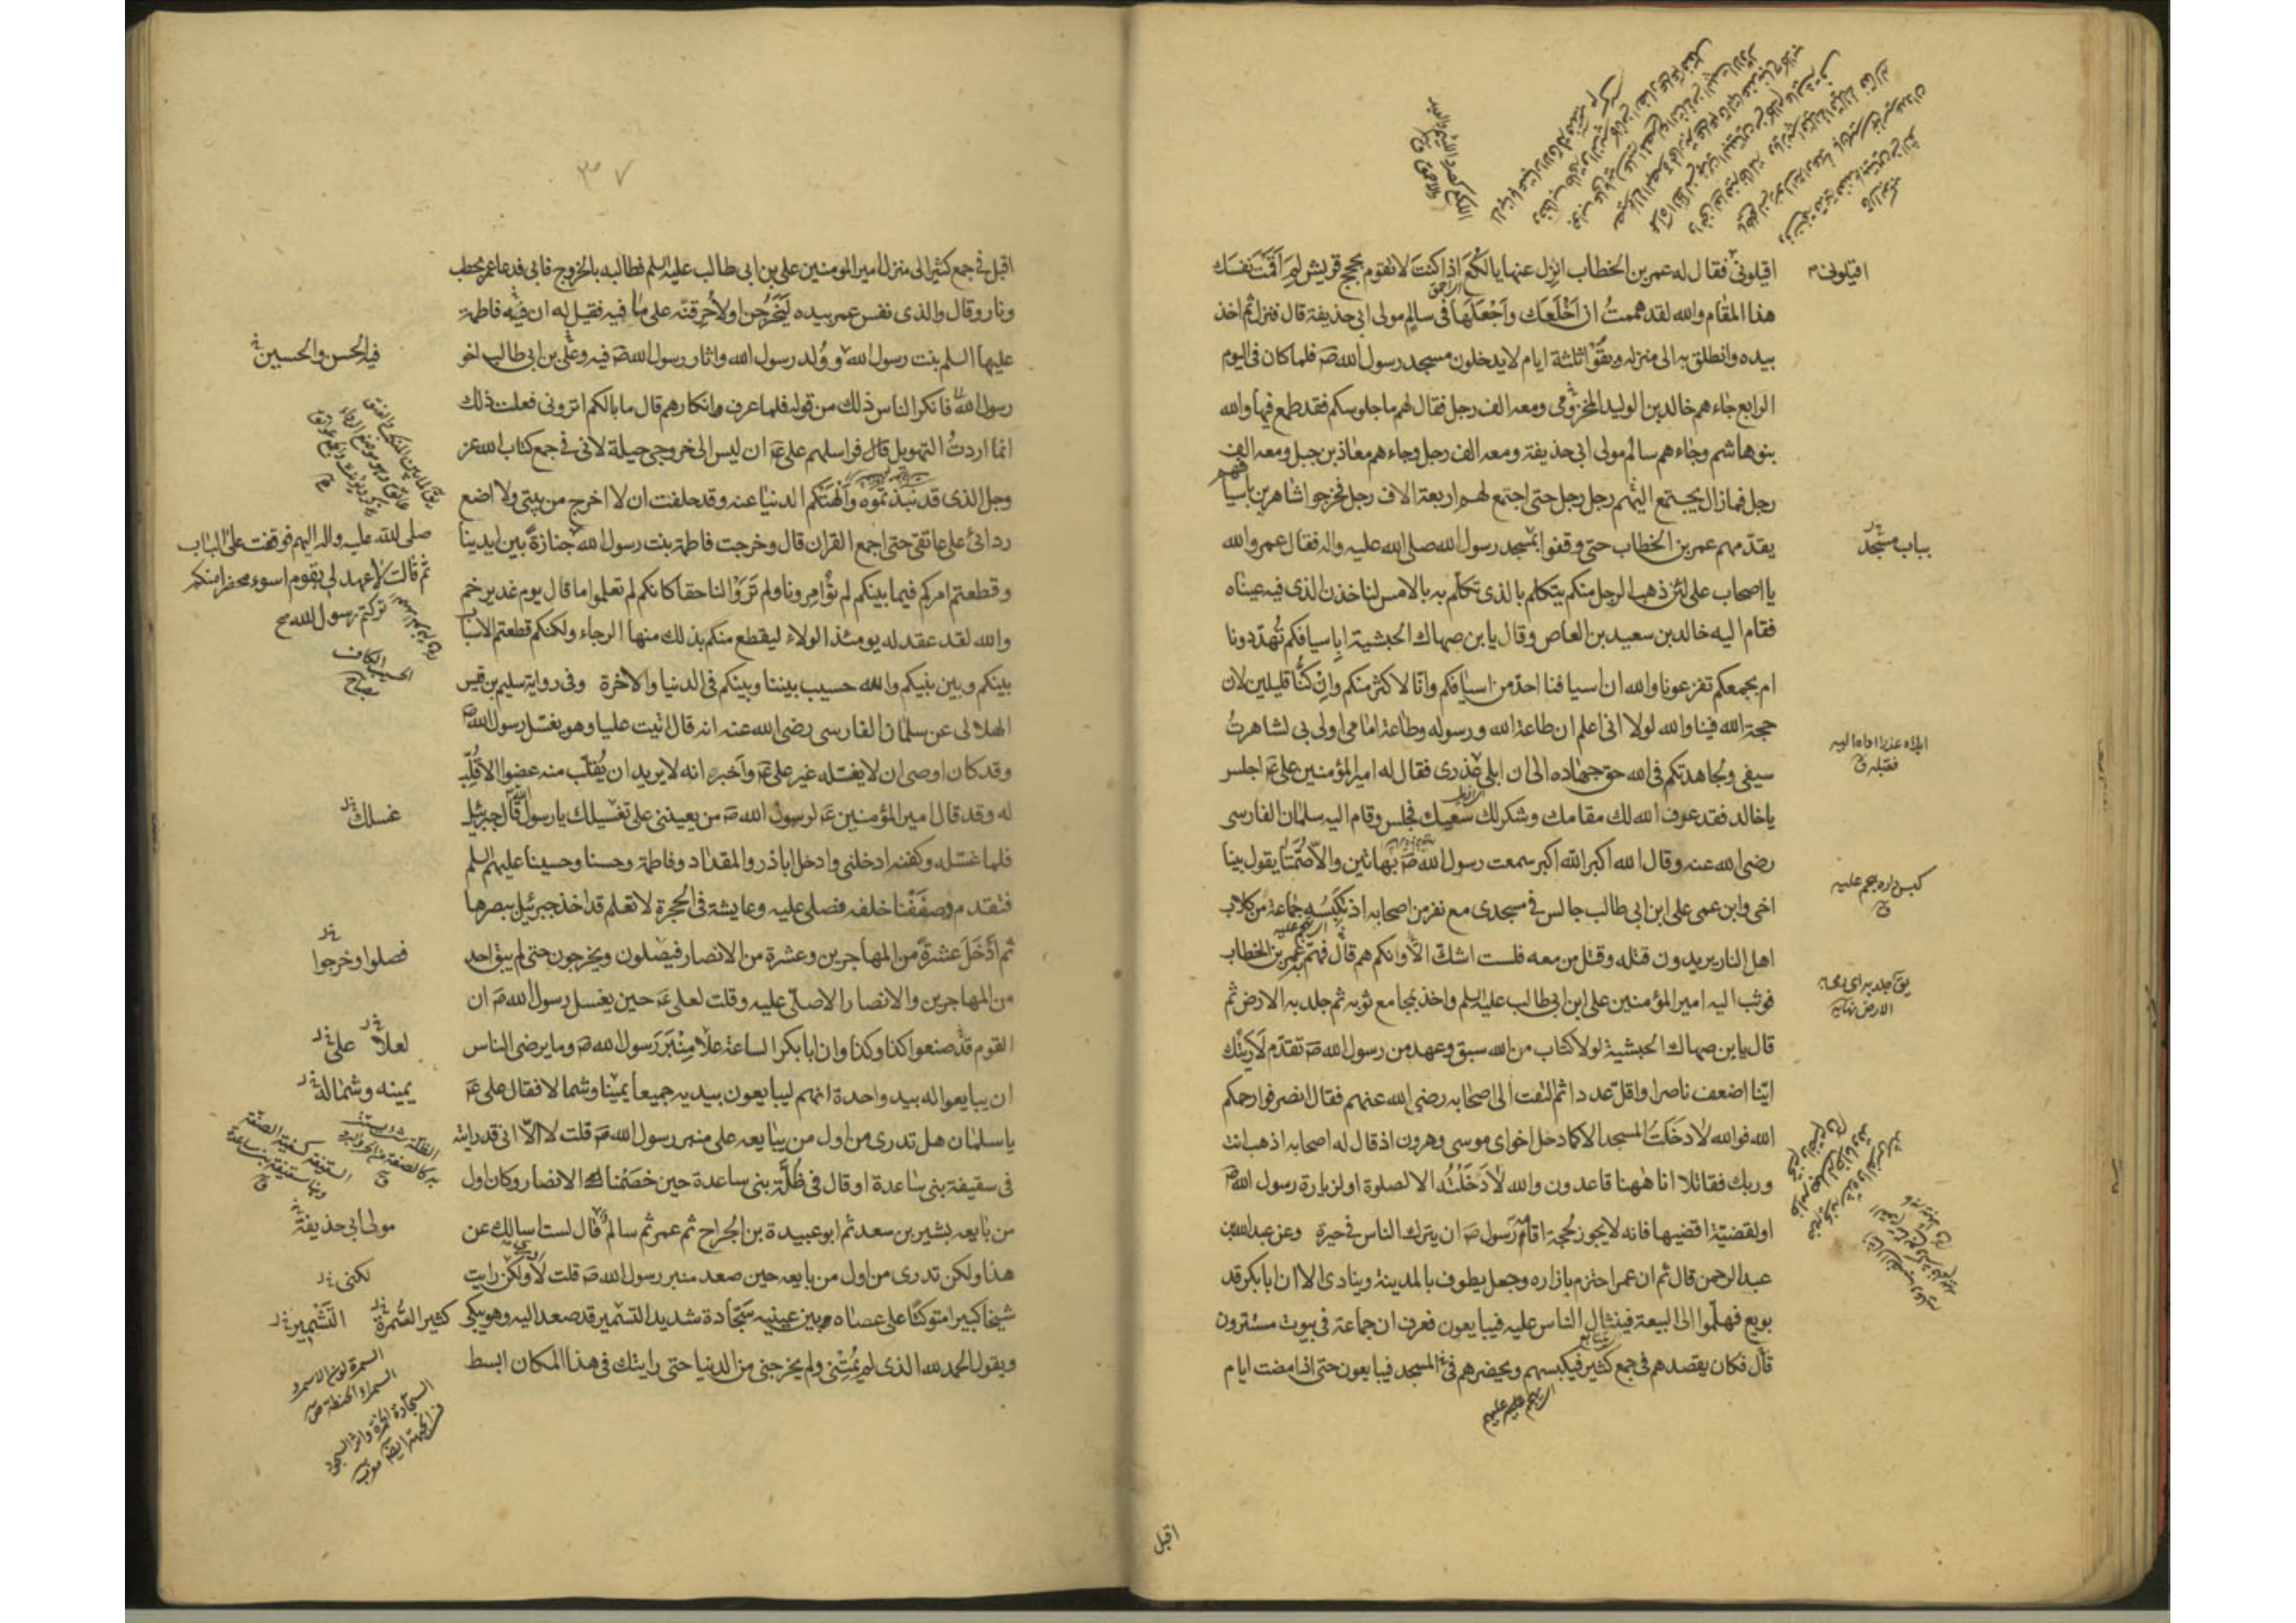 اقيلونى فقال له عمر بن الخطاب انزل عنها يا لكع اذا كنت لا تقوم بحجج قريش لم اقمت نفسك
هذا المقام والله لقد هممت ان اخلعك واجعلها فى سالم مولى ابى حذيفة قال فنزل ثم اخذ
بيده وانطلق به الى منزله وبقوا ثلثة ايام لا يدخلون مسجد رسول الله ص فلما كان فى اليوم
الرابع جاءهم خالد بن الوليد المخزومى ومعه الف رجل فقال لهم ما جلوسكم فقد طمع فيها والله
بنو هاشم وجاءهم سالم مولى ابى حذيفة ومعه الف رجل وجاءهم معاذ بن جبل ومعه الف
رجل فما زال يجتمع اليهم رجل رجل حتى اجتمع لهم اربعة الاف رجل فخرجوا شاهرين باسيافهم
يقدمهم عمر بن الخطاب حتى وقفوا بمسجد رسول الله صلى الله عليه واله فقال عمر والله
يا اصحاب على لئن ذهب الرجل منكم يتكلم بالذى تكلم به بالامس لناخذن الذى فيه عيناه
فقام اليه خالد بن سعيد بن العاص وقال يا بن صهاك الحبشية ابا سيافكم تهددونا
ام بجمعكم تفزعونا والله ان اسيافنا احد من اسيافكم وانا لاكثر منكم وان كنا قليلين لان
حجة الله فينا والله لولا انى اعلم ان طاعة الله ورسوله وطاعة امامى اولى بى لشاهرت
سيفى ولجاهدتكم فى الله حق جهاده الى ان ابلى عذرى فقال له امير المؤمنين على ع اجلس
يا خالد فقد عرف الله لك مقامك وشكر لك سعيك فجلس وقام اليه سلمان الفارسى
رضى الله عنه وقال الله اكبر الله اكبر سمعت رسول الله ص بهاتين والا صمتا يقول بينا
اخى وابن عمى على ابن ابى طالب جالس فى مسجدى مع نفر من اصحابه اذ تكبسه جماعة من كلاب
اهل النار يريدون قتله وقتل من معه فلست اشك الا وانكم هم قال فهم به عمر بن الخطاب
فوثب اليه امير المؤمنين على ابن ابى طالب عليه السلم واخذ بمجامع ثوبه ثم جلد به الارض ثم
قال يا بن صهاك الحبشية لولا كتاب من الله سبق وعهد من رسول الله ص تقدم لاريتك
اينا اضعف ناصرا واقل عددا ثم التفت الى اصحابه رضى الله عنهم فقال انصرفوا رحمكم
الله فوالله لا دخلت المسجد الا كما دخل اخواى موسى وهرون اذ قال له اصحابه اذهب انت
وربك فقاتلا انا ههنا قاعدون والله لا دخلته الا لصلوة او لزيارة رسول الله ص
او لقضية اقضيها فانه لا يجوز لحجة اقامه رسول ص ان يترك الناس فى حيرة وعن عبد الله بن
عبد الرحمن قال ثم ان عمر احتزم بازاره وجعل يطوف بالمدينة وينادى الا ان ابا بكر قد
بويع فهلموا الى البيعة فينثال الناس عليه فيبايعون فعرف ان جماعة فى بيوت مستترون
قال فكان يقصدهم فى جمع كثير فيكبسهم ويحضرهم فى المسجد فيبايعون حتى اذا مضت ايام
اقيلونى
بباب مسجد
اقبل
٣٧
اقبل فى جمع كثير الى منزل امير المؤمنين على بن ابى طالب عليه السلم فطالبه بالخروج فابى فدعا عمر بحطب
ونار وقال والذى نفس عمر بيده ليخرجن او لاحرقنه على ما فيه فقيل له ان فيه فاطمة
عليها السلم بنت رسول الله وولد رسول الله واثار رسول الله ص فيه وعلى بن ابى طالب اخو
رسول الله فانكر الناس ذلك من قوله فلما عرف وانكارهم قال ما بالكم اترونى فعلت ذلك
انما اردت التهويل قال فراسلهم على ع ان ليس الى خروجى حيلة لانى فى جمع كتاب الله عز
وجل الذى قد نبذتموه والهتكم الدنيا عنه وقد حلفت ان لا اخرج من بيتى ولا اضع
ردائى على عاتقى حتى اجمع القران قال وخرجت فاطمة بنت رسول الله جنازة بين ايدينا
وقطعتم امركم فيما بينكم لم تؤامرونا ولم تروا لنا حقا كانكم لم تعلموا ما قال يوم غدير خم
والله لقد عقد له يومئذ الولاء ليقطع منكم بذلك منها الرجاء ولكنكم قطعتم الاسباب
بينكم وبين نبيكم والله حسيب بيننا وبينكم فى الدنيا والاخرة وفى رواية سليم بن قيس
الهلالى عن سلمان الفارسى رضى الله عنه انه قال اتيت عليا وهو يغسل رسول الله ص
وقد كان اوصى ان لا يغسله غير على ع واخبره انه لا يريد ان يقلب منه عضوا الا قلب
له وقد قال امير المؤمنين ع لرسول الله ص من يعيننى على تغسيلك يا رسول الله قال جبرئيل
فلما غسله وكفنه ادخلنى وادخل اباذر والمقداد وفاطمة وحسنا وحسينا عليهم السلم
فتقدم وصففنا خلفه فصلى عليه وعايشة فى الحجرة لا تعلم قد اخذ جبرئيل ببصرها
ثم ادخل عشرة من المهاجرين وعشرة من الانصار فيصلون ويخرجون حتى لم يبق احد
من المهاجرين والانصار الا صلى عليه وقلت لعلى ع حين يغسل رسول الله ص ان
القوم قد صنعوا كذا وكذا وان ابا بكر الساعة علا منبر رسول الله ص وما يرضى الناس
ان يبايعوا له بيد واحدة انهم ليبايعون بيديه جميعا يمينا وشمالا فقال على ع
يا سلمان هل تدرى من اول من يبايعه على منبر رسول الله ص قلت لا الا انى قد رايته
فى سقيفة بنى ساعدة او قال فى ظلة بنى ساعدة حين خصمنا الانصار وكان اول
من بايعه بشير بن سعد ثم ابو عبيدة بن الجراح ثم عمر ثم سالم قال لست اسالك عن
هذا ولكن تدرى من اول من بايعه حين صعد منبر رسول الله ص قلت لا ولكن رايت
شيخا كبيرا متوكئا على عصاه بين عينيه سجادة شديد التشمير قد صعد اليه وهو يبكى
ويقول الحمد لله الذى لم يمتنى ولم يخرجنى من الدنيا حتى رايتك فى هذا المكان ابسط
فيه الحسن والحسين
صلى الله عليه واله اليهم فوقفت على الباب
ثم قالت لا عهد لى بقوم اسوء محضرا منكم
تركتم رسول الله
غسلك
فصلوا وخرجوا
لعلا على
يمينه وشماله
مولى ابى حذيفة
لكنى
كثير السمرة التشمير